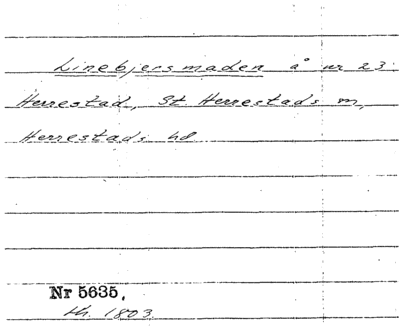 Linebjersmaden å nr 23
Herrestad, St Herrestads m,
Herrestads hd
Nr 5635,
th. 1803